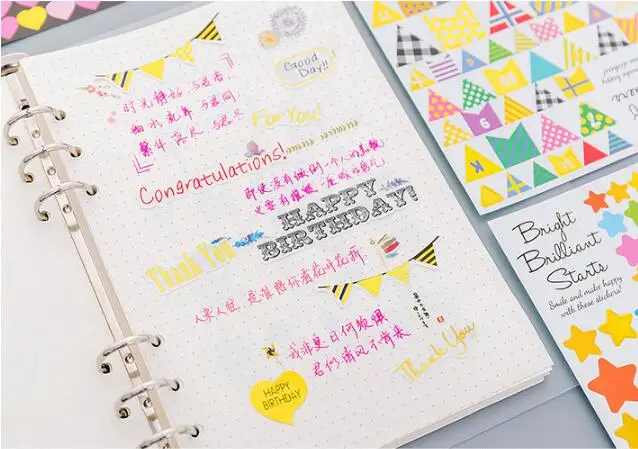 Good
Day!!
时光静好，与君语；
细水流年，与君同；
繁华落尽，与君老
For You!
Congratulations!
即使没有
一个人的
HAPPY
BIRTHDAY!
Thank You
人来人往，是谁陪你看花开花谢
我非夏日何须惧
君似清风不肯来
Thank You
HAPPY
BIRTHDAY
9
Bright
Brilliant
Stars
Smile and make happy
with these stickers!